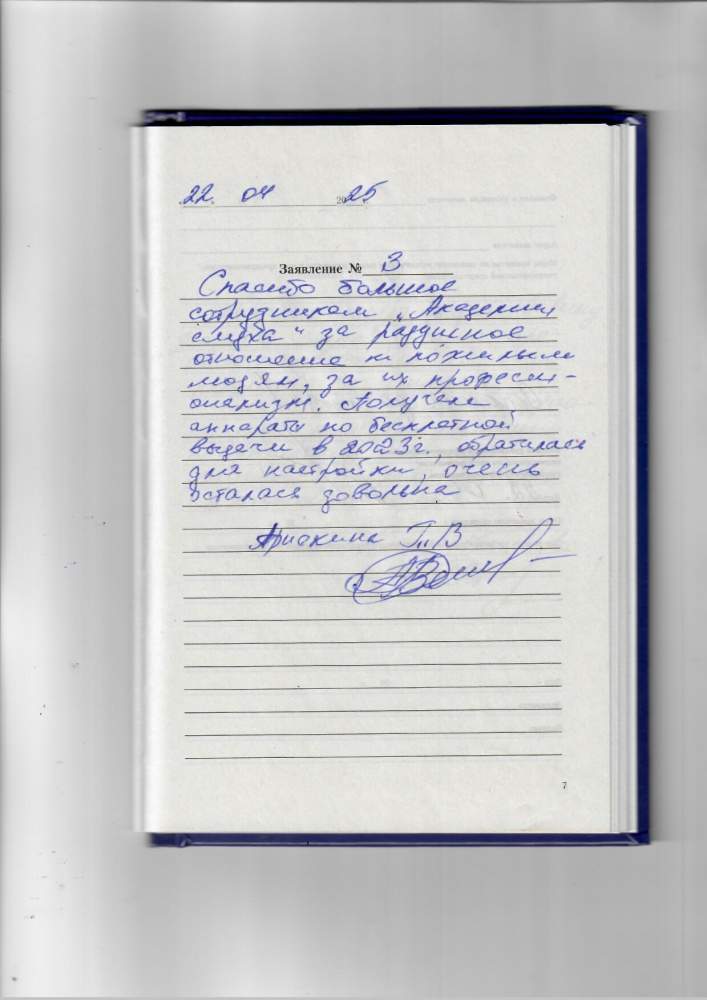 22. 04 2025
Заявление № 3
Спасибо большое
сотрудникам „Академии
слуха" за радушное
отношение к пожилым
людям, за их професси-
онализм. Получала
аппараты по бесплатной
выдачи в 2023г., обратилась
для настройки, очень
осталась довольна
Т. В
7